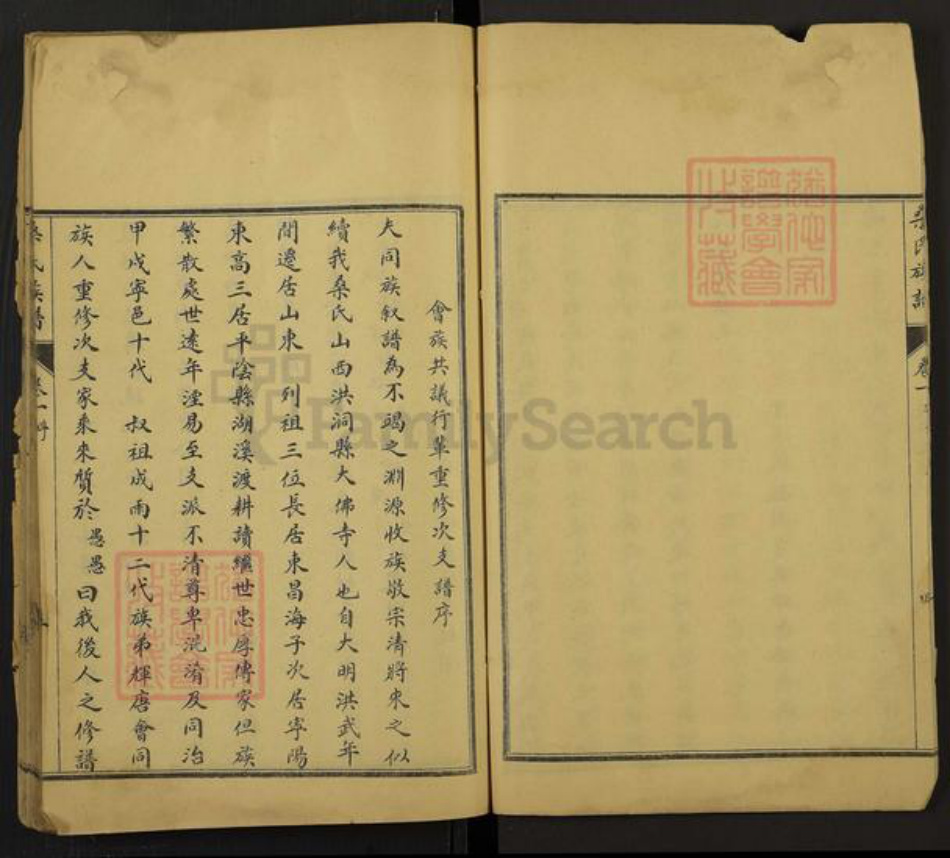 桑氏族譜
卷一
會族共議行輩重修次支譜序
夫同族叙譜為不竭之淵源收族敬宗清將來之似
續我桑氏山西洪洞縣大佛寺人也自大明洪武年
間遷居山東 列祖三位長居東昌海子次居寧陽
東高三居平陰縣湖溪渡耕讀繼世忠厚傳家但族
繁散處世遠年湮易至支派不清尊卑混淆及同治
甲戌寧邑十代 叔祖成雨十二代族弟輝唐會同
族人重修次支家乘來質於愚愚曰我後人之修譜
桑氏族譜
卷一序
FamilySearch